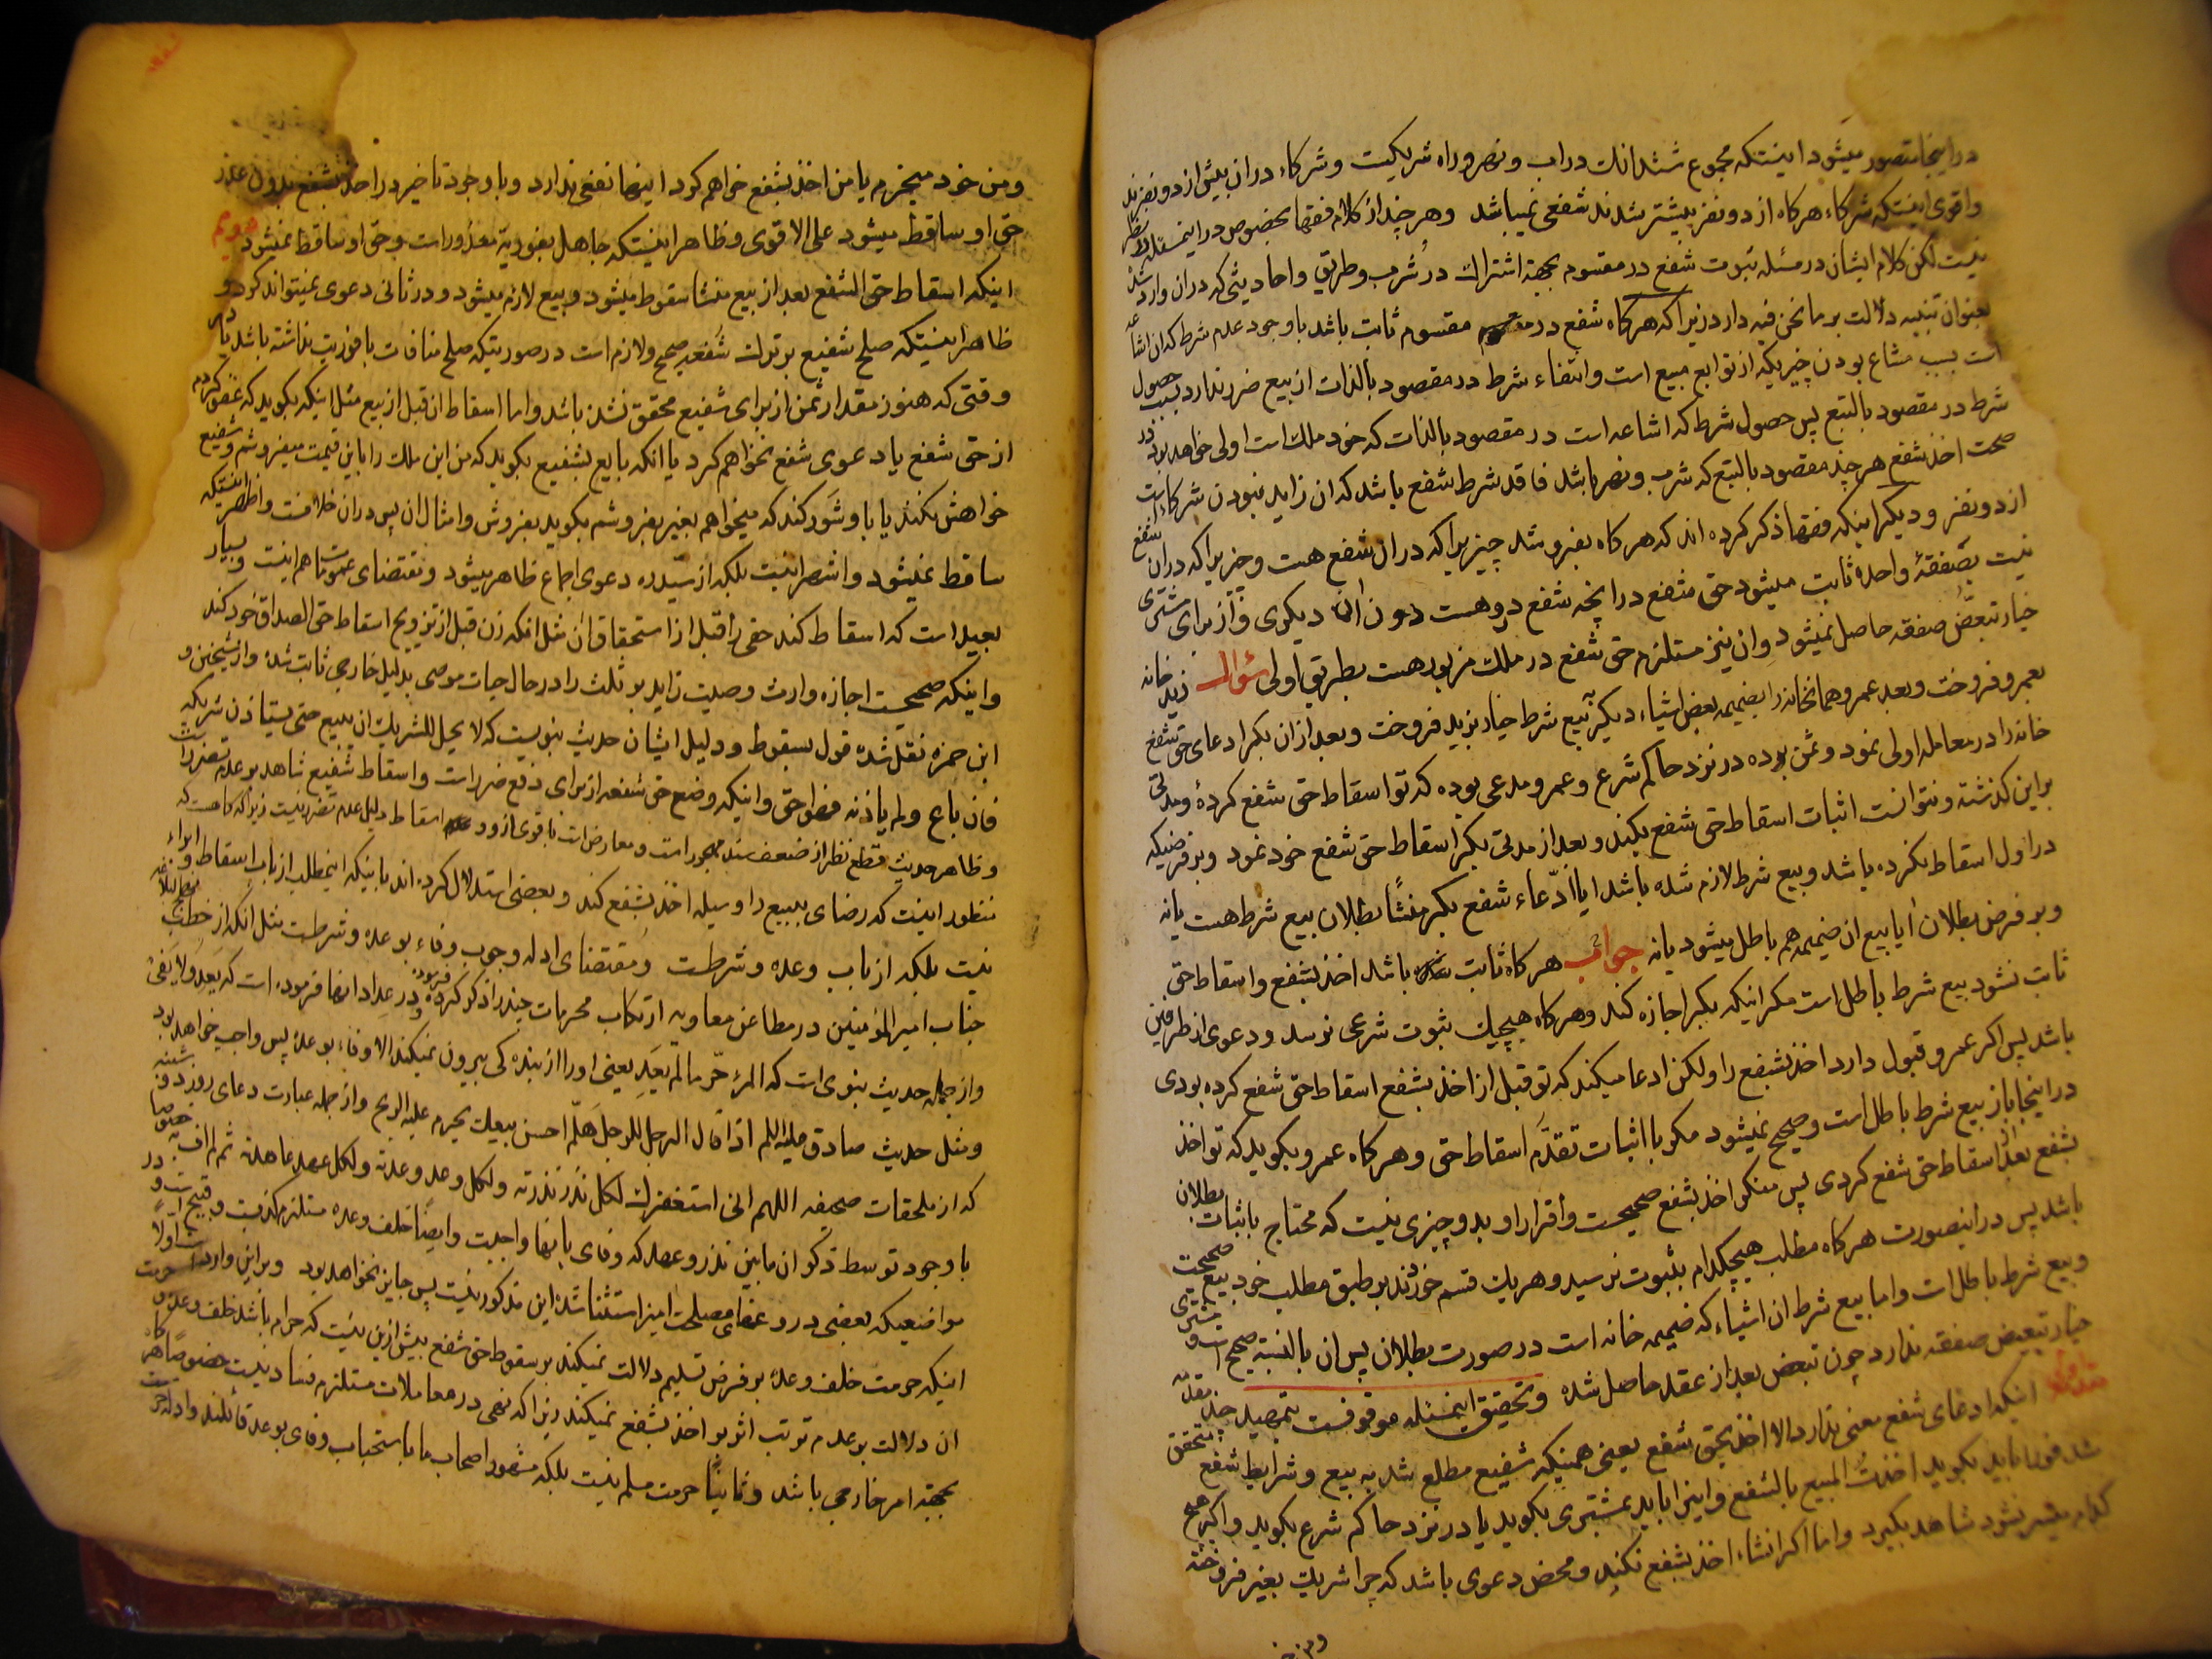 در اینجا متصور میشود اینستکه مجموع ششدانك در اب و نهر و راه شریکیت و شرکاء در ان بیش از دو نفرند
و اقوی اینستکه شرکاء هرکاه از دو نفر بیشتر شدند شفعی نمیباشد وهر چند از کلام فقها بخصوص در اینمسئله بنظر
نیست لکن کلام ایشان در مسئله ثبوت شفع در مقسوم بجهة اشتراك در شرب و طریق و احادیثی که در ان وارد شده
بعنوان تنبیه دلالت بر ما نحن فیه دارد زیرا که هرکاه شفع در مقسوم ثابت باشد با وجود عدم شرط که ان اشاعه
است بسبب مشاع بودن چیزیکه از توابع مبیع است و انتفاء شرط در مقصود بالذات از بیع ضرر ندارد بسبب حصول
شرط در مقصود بالتبع پس حصول شرط که اشاعه است در مقصود بالذات که خود ملك است اولی خواهد بود در
صحت اخذ شفع هر چند مقصود بالتبع که شرب و نهر باشد فاقد شرط شفع باشد که ان زاید نبودن شرکاء است
از دو نفر و دیکر اینکه فقها ذکر کرده اند که هرکاه بفروشد چیزیرا که در ان شفع هست و چیزیرا که در ان شفع
نیست بصفقهٔ واحدهٔ ثابت میشود حق شفع در انچه شفع در وهست دون ان دیکری و از برای مشتری
خیار تبعض صفقه حاصل نمیشود و ان نیز مستلزم حق شفع در ملك مزبور هست بطریق اولی سؤال زید خانه
بعمرو فروخت و بعد عمرو همانخانه را بضمیمه بعض اشیاء دیکر ببیع شرط خیار بزید فروخت و بعد از ان بکر ادعای حق شفع
خانه را در معامله اولی نمود و ثمن بوده در نزد حاکم شرع و عمرو مدعی بوده که تو اسقاط حق شفع کردهٔ و مدتی
بر این کذشته و نتوانست اثبات اسقاط حق شفع بکند و بعد از مدتی بکر اسقاط حق شفع خود نمود و بر فرضیکه
در اول اسقاط نکرده باشد و بیع شرط لازم شده باشد ایا ادّعاء شفع بکر منشأ بطلان بیع شرط هست یا نه
و بر فرض بطلان ایا بیع ان ضمیمه هم باطل میشود یا نه جواب هرکاه ثابت باشد اخذ بشفع و اسقاط حق
ثابت نشود بیع شرط باطل است مکر اینکه بکر اجازه کند وهرکاه هیچیك ثبوت شرعی نرسد و دعوی از طرفین
باشد پس اکر عمرو قبول دارد اخذ بشفع را و لکن ادعا میکند که تو قبل از اخذ بشفع اسقاط حق شفع کرده بودی
در اینجا باز بیع شرط باطل است و صحیح نمیشود مکر با اثبات تقدّم اسقاط حق وهرکاه عمرو بکوید که تو اخذ
بشفع بعد اسقاط حق شفع کردی پس منکر اخذ بشفع صحیحست و اقرار او بدو چیزی نیست که محتاج باثبات بطلان
باشد پس در اینصورت هرکاه مطلب هیچکدام بثبوت نرسید وهریك قسم خوردند بر طبق مطلب خود بیع صحیحست
و بیع شرط باطل است و اما بیع شرط ان اشیاء که ضمیمه خانه است در صورت بطلان پس ان بالنسبة صحیح است و مشتری
خیار تبعیض صفقه ندارد چون تبعض بعد از عقد حاصل شده و تحقیق اینمسئله موقوفست بتمهید چند مقدّمه
اینکه ادعای شفع معنی ندارد الا اخذ بحق شفع یعنی همینکه شفیع مطلع شد به بیع و شرایط شفع متحقق
شد فورا باید بکوید اخذت المبیع بالشفع و اینرا باید بمشتری بکوید یا در نزد حاکم شرع بکوید و اکر هیچ
کدام میسر نشود شاهد بکیرد و اما اکر انشاء اخذ بشفع نکند و محض دعوی باشد که چرا شریك بغیر فروخته
و من خود میخرم یا من اخذ بشفع خواهم کرد اینها نفعی ندارد و با وجود تاخیر در اخذ بشفع بدون عذر
حق او ساقط میشود علی الاقوی و ظاهر اینستکه جاهل بفوریة معذور است و حق او ساقط نمیشود دویم
اینکه اسقاط حق الشفع بعد از بیع منشا سقوط میشود و بیع لازم میشود و در ثانی دعوی نمیتواند کرد و
ظاهر اینستکه صلح شفیع بر ترك شفعه صحیح و لازم است در صورتیکه صلح منافات با فوریت نداشته باشد
وقتی که هنوز مقدار ثمن از برای شفیع محقق نشده باشد و اما اسقاط ان قبل از بیع مثل اینکه بکوید که عفو کردم
از حق شفع یا دعوی شفع نخواهم کرد یا انکه بایع بشفیع بکوید که من این ملك را باین قیمت میفروشم و شفیع
خواهش نکند یا با او شور کند که میخواهم بغیر بفروشم بکوید بفروش و امثال ان پس در ان خلافست و اظهر اینستکه
ساقط نمیشود و اشهر اینست بلکه از سیّد ره دعوی اجماع ظاهر میشود و مقتضای عمومات هم اینست و بسیار
بعید است که اسقاط کند حقی را قبل از استحقاق ان مثل انکه زن قبل از تزویج اسقاط حق الصداق خود کند
و اینکه صحیحست اجازه وارث وصیت زاید بر ثلث را در حال حیات موصی بدلیل خارجی ثابت شده و از شیخین و
ابن حمزه نقل شده قول بسقوط و دلیل ایشان حدیث نبویست که لا یحل للشریك ان یبیع حتی یستاذن شریکه
فان باع و لم یاذنه فهو احق و اینکه وضع حق شفعه از برای دفع ضرر است و اسقاط شفیع شاهد بر عدم تضرر است
و ظاهر حدیث قطع نظر از ضعف سند مهجور است و معارض است باقوی از و د اسقاط دلیل عدم تضرر نیست زیرا که کاهست که
منظور اینست که رضای ببیع را وسیله اخذ بشفع کند و بعضی استدلال کرده اند باینکه اینمطلب از باب اسقاط و ابراء
نیست بلکه از باب وعده و شرطست و مقتضای ادله وجوب وفاء بوعده و شرطست مثل انکه از خطب
جناب امیرالمؤمنین در مطاعن معاویه ارتکاب محرمات چند را ذکر کرده و در عداد انها فرموده است که یعد و لا یفی
و از جمله حدیث نبوی است که المرء حرّ ما لم یعد یعنی او را از بنده کی بیرون نمیکند الا وفاء بوعده پس واجب خواهد بود
و مثل حدیث صادق علیه السلم اذا قال الرجل للرجل هلمّ احسن بیعك یحرم علیه الربح و از جمله عبارت دعای روز دوشنبه
که از ملحقات صحیفه اللهم انی استغفرك لكل نذر نذرته و لكل وعد وعدته و لكل عهد عاهدته ثم لم اف به خصوصا
با وجود توسط ذکر ان مابین نذر و عهد که وفای بانها واجبست و ایضا خلف وعده مستلزم کذبست و قبیح است و در
مواضعیکه بعضی دروغهای مصلحت امیز استثنا شده این مذکور نیست پس جایز نخواهد بود و بر این وارد است اولا
اینکه حرمت خلف وعده بر فرض تسلیم دلالت نمیکند بر سقوط حق شفع بیش از این نیست که حرام باشد خلف وعده و حرمت
ان دلالت بر عدم ترتب اثر بر اخذ بشفع نمیکند زیرا که نهی در معاملات مستلزم فساد نیست خصوصا هرکاه
بجهة امر خارجی باشد و ثانیًا حرمت مسلم نیست بلکه مشهور اصحاب ما باستحباب وفای بوعد قائلند و ادله